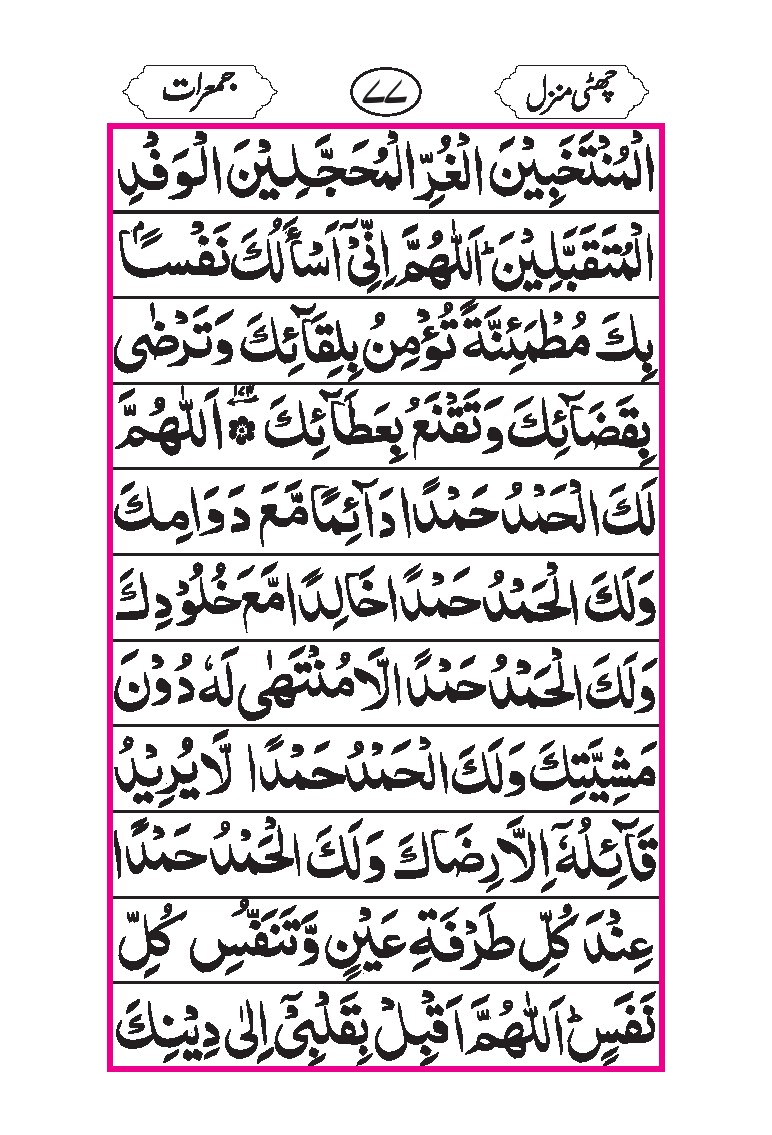 چھٹی منزل ۷۷ جمعرات
الْمُنْتَخَبِيْنَ الْغُرِّ الْمُحَجَّلِيْنَ الْوَفْدِ
الْمُتَقَبَّلِيْنَ ؕ اَللّٰهُمَّ اِنِّیْۤ اَسْأَلُكَ نَفْسًاۢ
بِكَ مُطْمَئِنَّةً تُؤْمِنُ بِلِقَآئِكَ وَتَرْضٰی
بِقَضَآئِكَ وَتَقْنَعُ بِعَطَآئِكَ ۞ اَللّٰهُمَّ
لَكَ الْحَمْدُ حَمْدًا دَآئِمًا مَّعَ دَوَامِكَ
وَلَكَ الْحَمْدُ حَمْدًا خَالِدًا مَّعَ خُلُوْدِكَ
وَلَكَ الْحَمْدُ حَمْدًا لَّا مُنْتَهٰی لَهٗ دُوْنَ
مَشِيَّتِكَ وَلَكَ الْحَمْدُ حَمْدًا لَّا يُرِيْدُ
قَآئِلُهٗۤ اِلَّا رِضَاكَ وَلَكَ الْحَمْدُ حَمْدًا
عِنْدَ كُلِّ طَرْفَةِ عَيْنٍ وَّتَنَفُّسِ كُلِّ
نَفَسٍ ؕ اَللّٰهُمَّ اَقْبِلْ بِقَلْبِیْۤ اِلٰی دِيْنِكَ